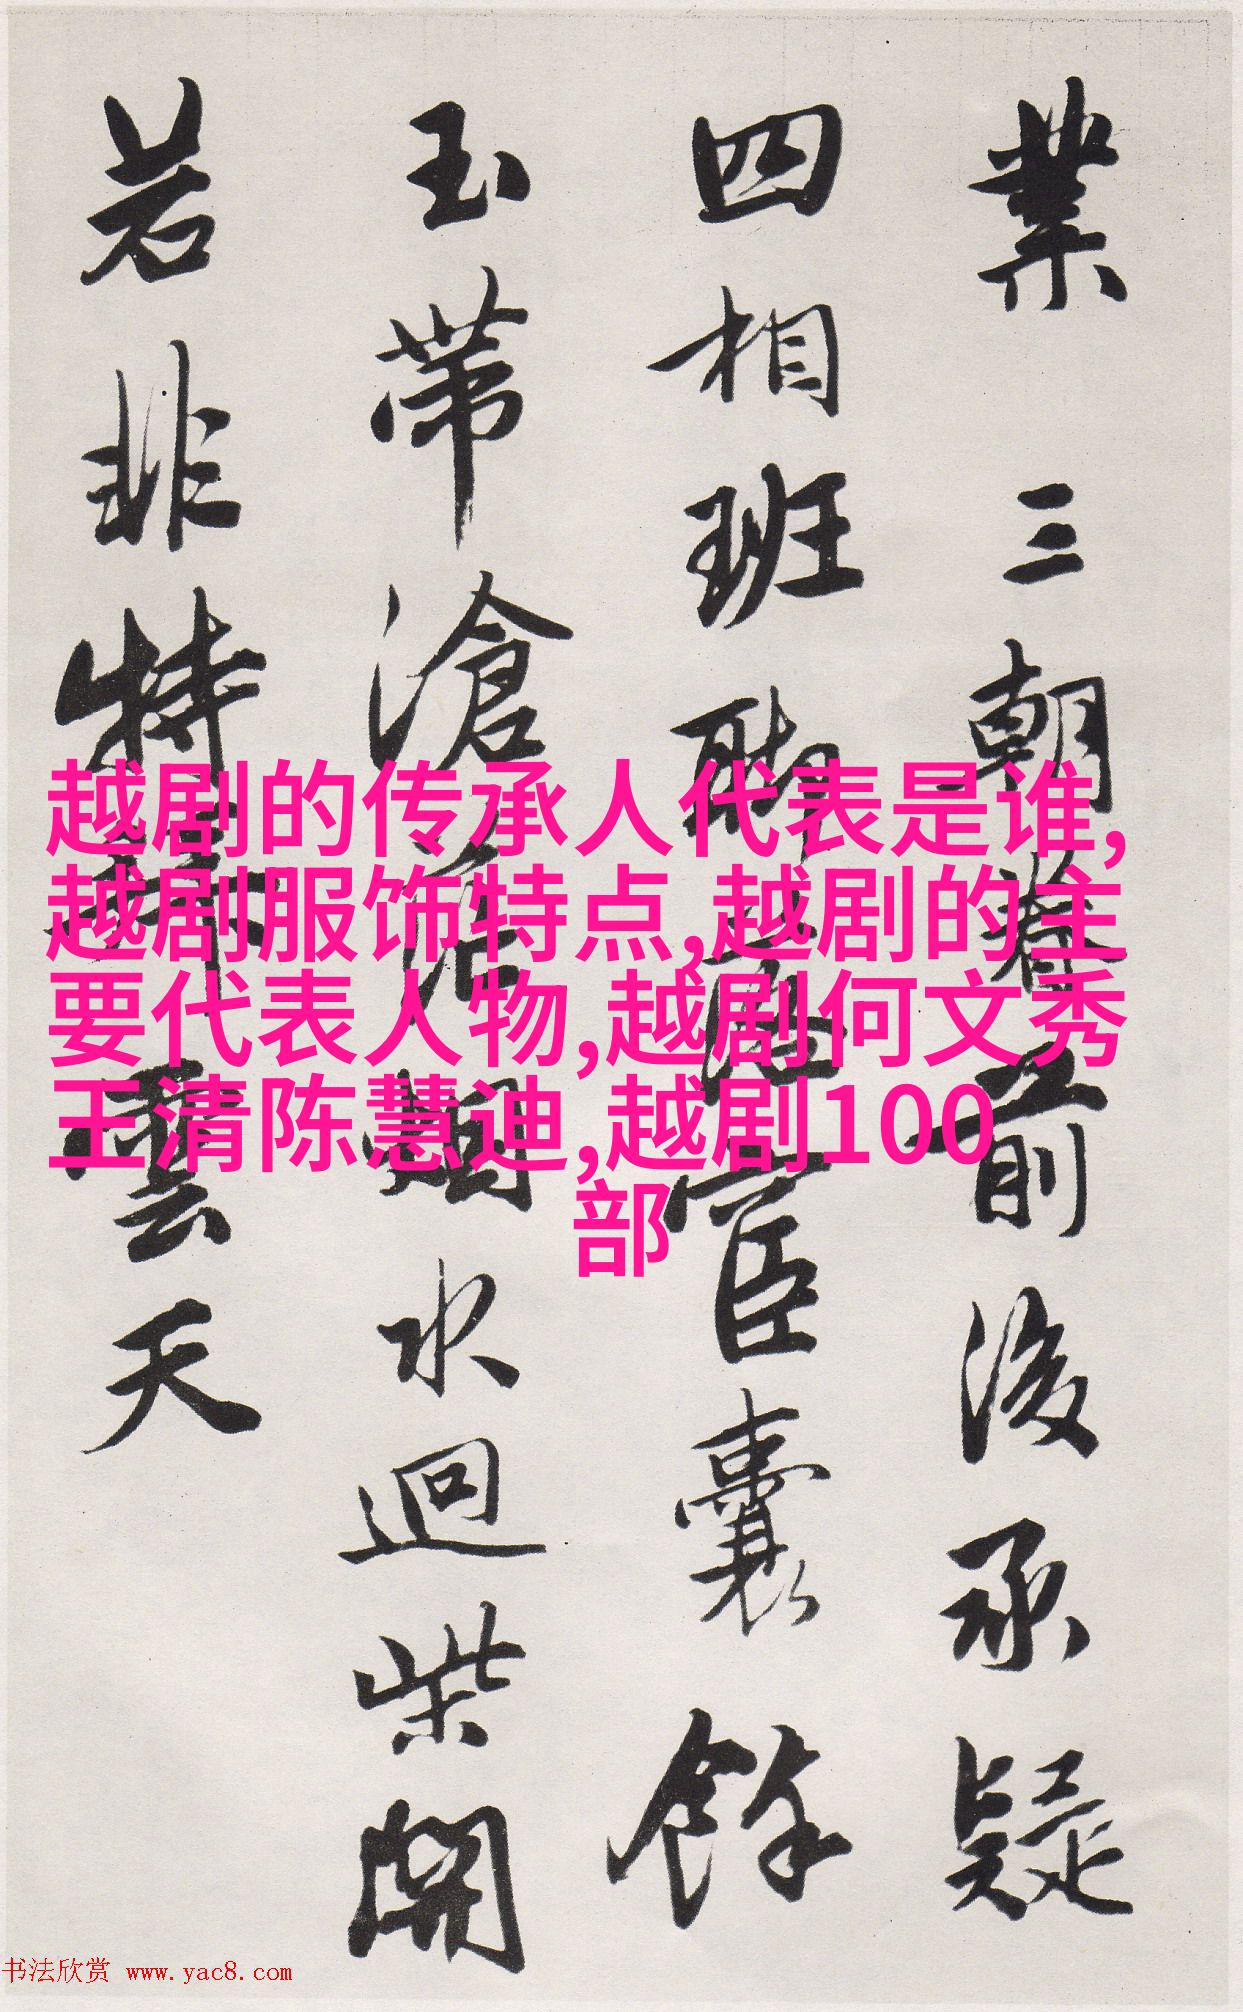 業 三朝眷前後承疑
四相班聯宦囊餘
玉帶滄烟水迴柴開
若非特雲天
越剧的传承人代表是谁,
越剧服饰特点,越剧的主
要代表人物,越剧何文秀
王清陈慧迪,越剧100
部
书法欣赏 www.yac8.com